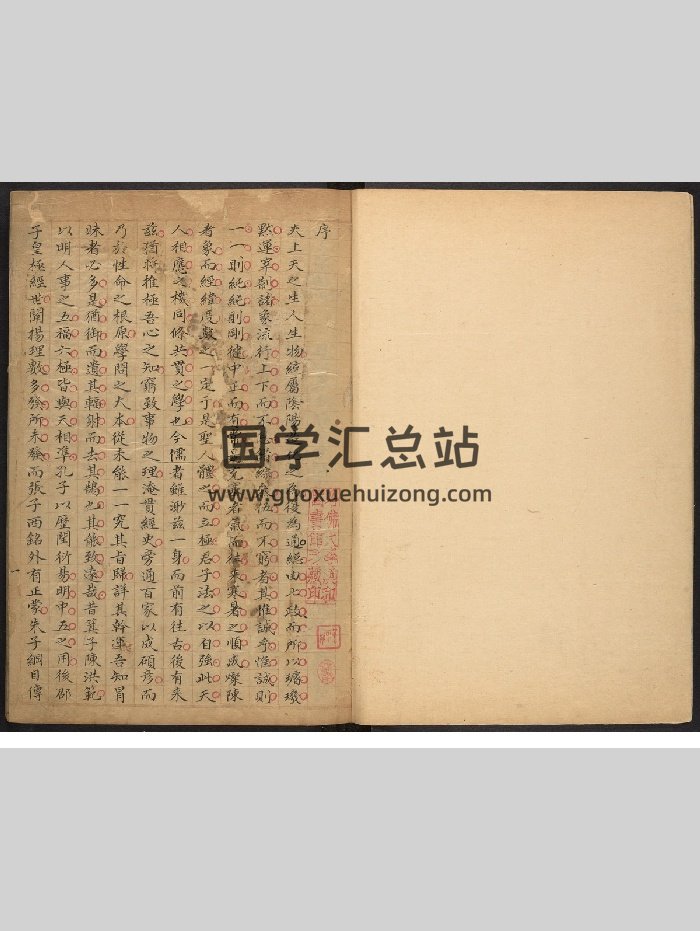 序
夫上天之生人生物統屬陰陽
默運宰割諸象流行上下而不
一一則純純則剛健中正而有
者象而經緯度數之一定于是聖人體之而立極君子法之以自強此天
人相應之機同條共貫之學也今儒者雖渺茲一身而前有往古後有來
茲猶將推極吾心之知窮致事物之理淹貫經史旁通百家以成碩彥而
乃於性命之根原學問之大本從未嘗一一究其旨歸詳其幹運吾知冒
昧者必多是猶御而遺其輻射而去其鵠也其能致遠哉昔箕子陳洪範
以明人事之五福六極皆與天相準孔子以歷閏衍易明中五之用後邵
子皇極經世闡揚理數多發所未發而張子西銘外有正蒙朱子綱目傳
一
国学汇总站
www.guoxuehuizong.com